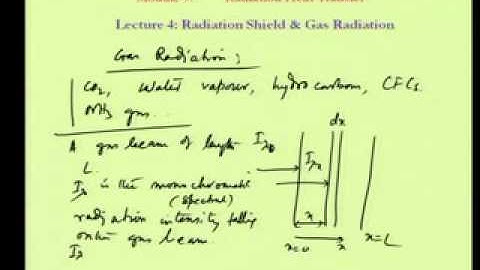 Module 9: Radiation Heat Transfer
Lecture 4: Radiation Shield & Gas Radiation
Gas Radiation;
CO2, Water vapour, hydrocarbon, CFCs
gas...
A gas beam of length
L.
Iλ is the monochromatic
(spectral)
radiation intensity falling
onto gas beam.
Iλ
Iλ0
dx
Iλx
x
x=0
x
x=L